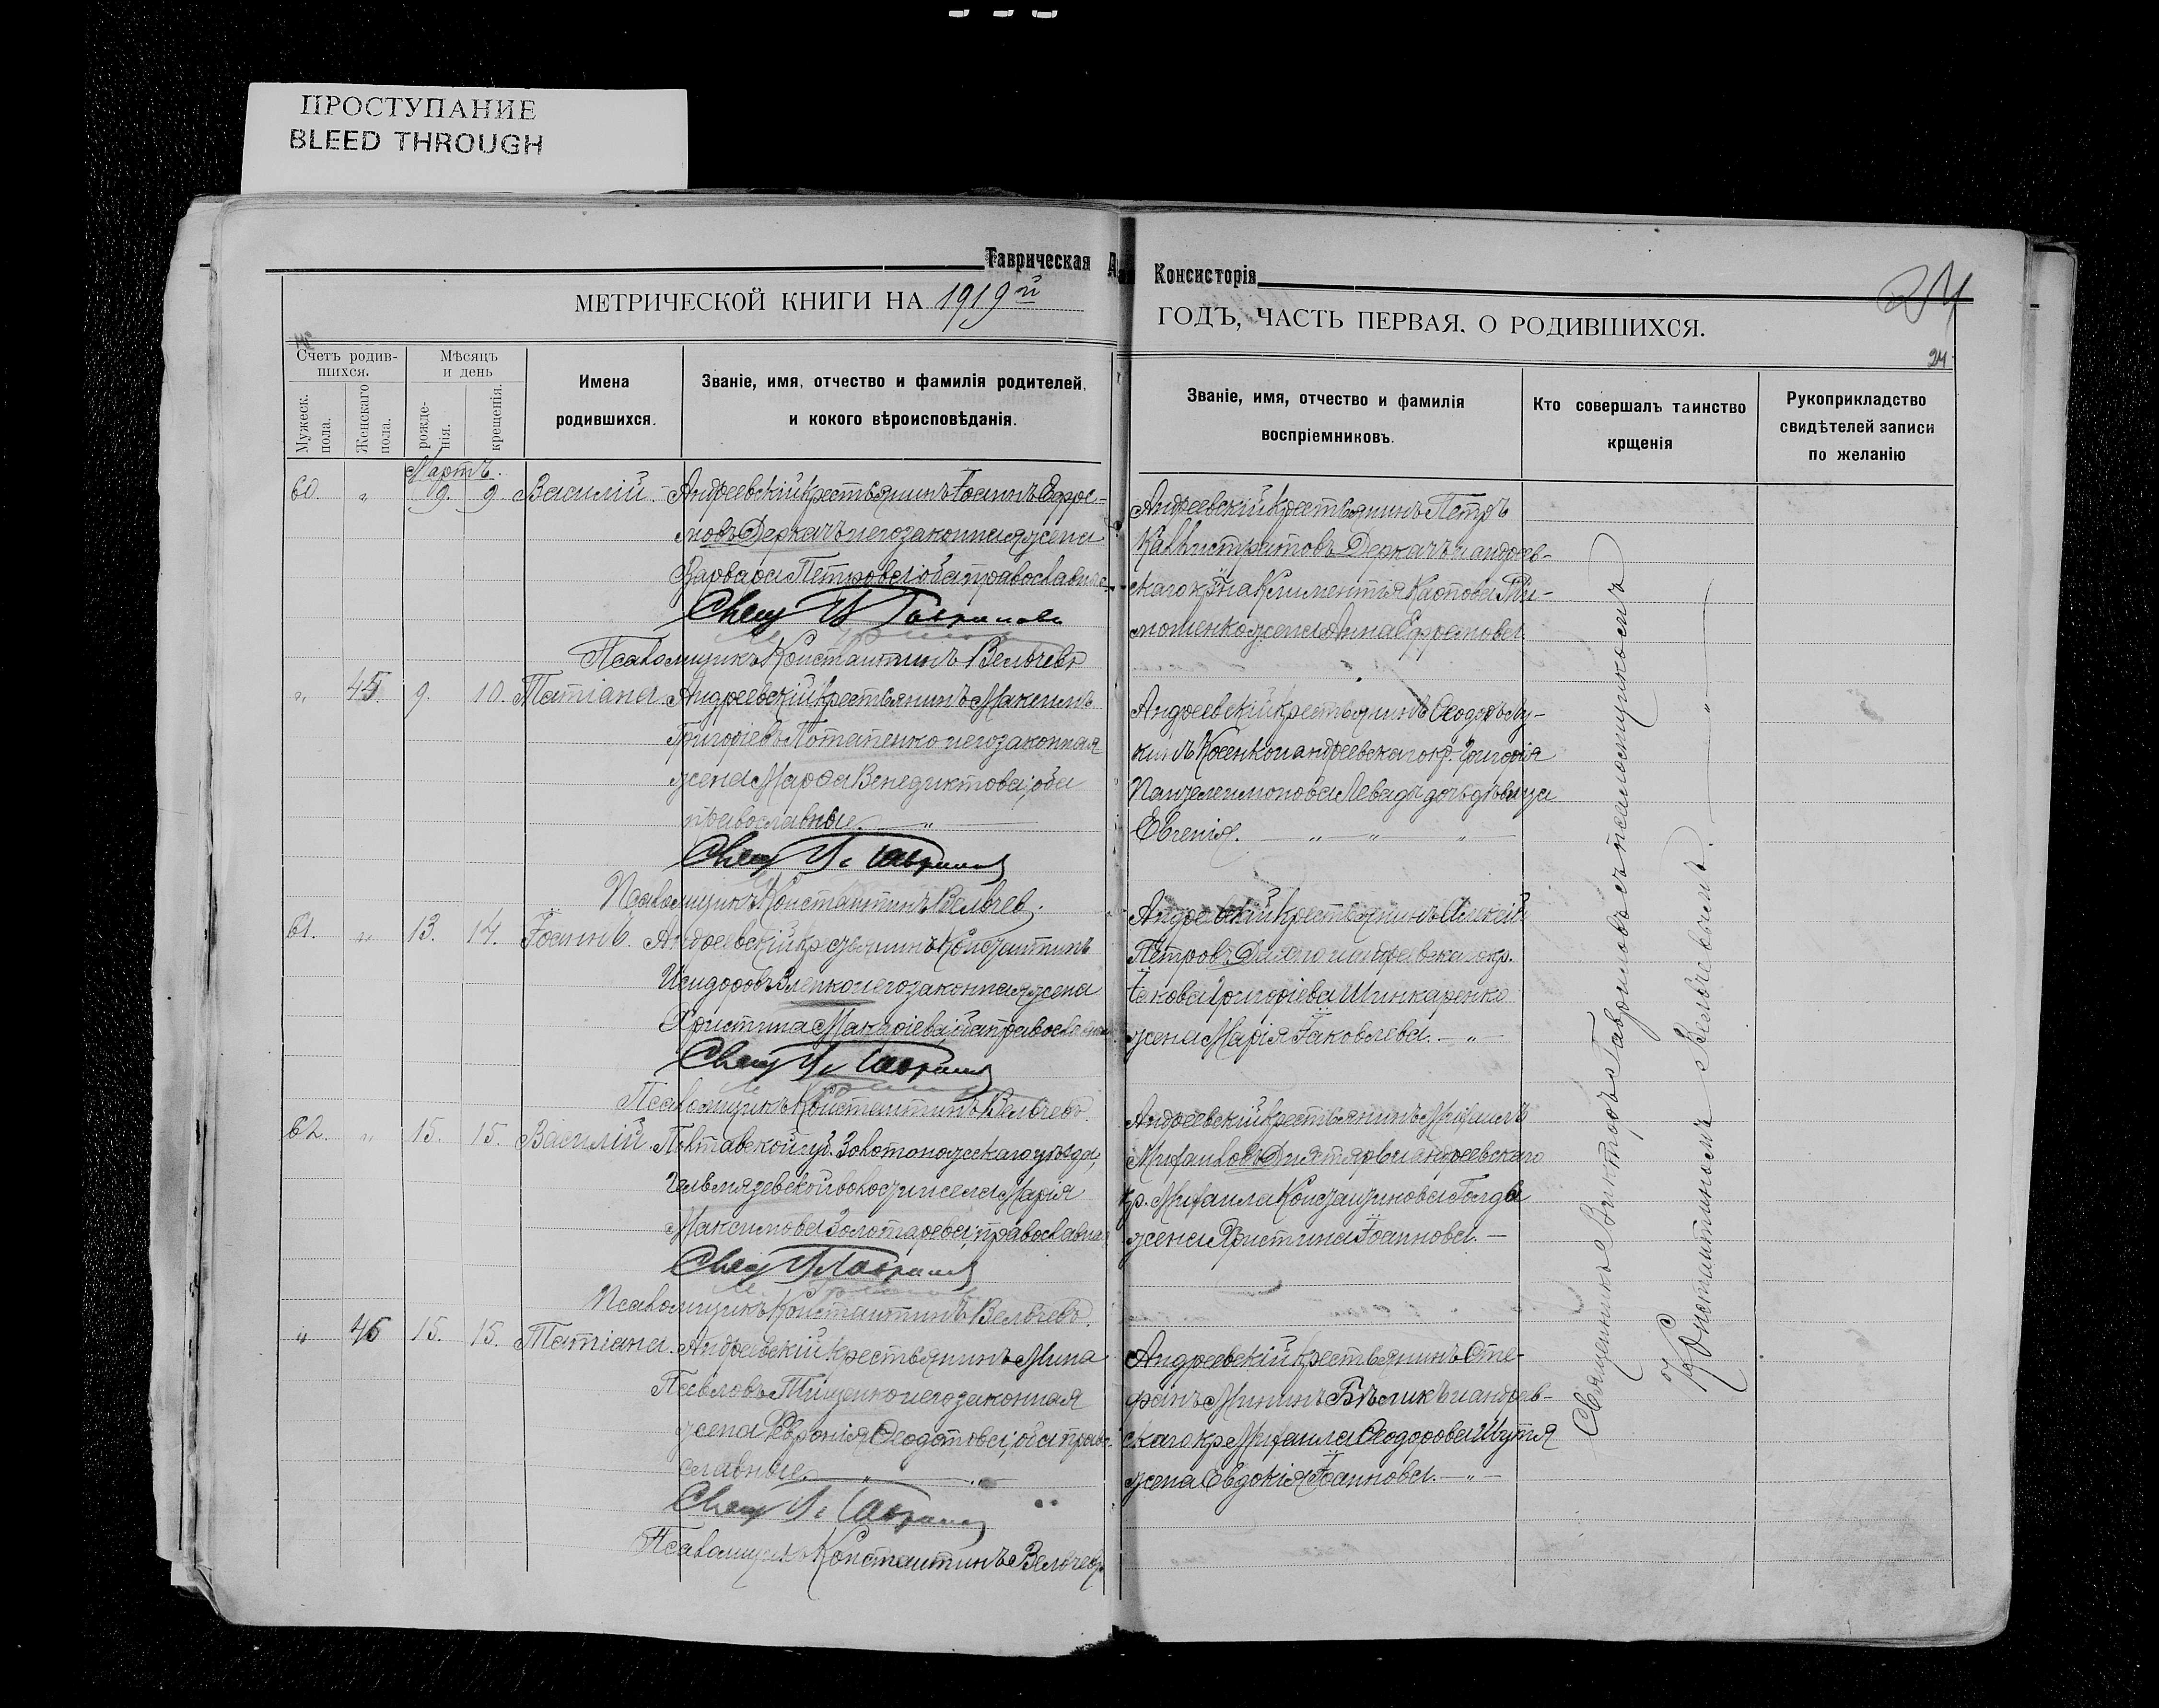 ПРОСТУПАНИЕ
BLEED THROUGH
Таврическая
Консисторія
МЕТРИЧЕСКОЙ КНИГИ НА 1919й
ГОДЪ, ЧАСТЬ ПЕРВАЯ, О РОДИВШИХСЯ.
24
24
Счетъ родив-
шихся.
Мужеск.
пола.
Женскаго
пола.
Мѣсяцъ
и день
рожде-
нія.
крещенія.
Имена
родившихся.
Званіе, имя, отчество и фамилія родителей,
и кокого вѣроисповѣданія.
Званіе, имя, отчество и фамилія
воспріемниковъ.
Кто совершалъ таинство
крщенія
Рукоприкладство
свидѣтелей записи
по желанію
Мартъ.
60. " 9. 9 Василій. Андреевскій крестьянинъ Іоаннъ Ефре-
мовъ Деркачъ и его законная жена
Варвара Петрова; оба православные
Псаломщикъ Константинъ Вельчевъ
Андреевскій крестьянинъ Петръ
Каллистратовъ Деркачъ и андреев-
скаго кр-на Климентія Карпова Ти-
мошенко жена Анна Ефремова
" 45. 9. 10. Татіана. Андреевскій крестьянинъ Максимъ
Григоріевъ Потапенко и его законная
жена Марѳа Венедиктова; оба
православные. "
Псаломщикъ Константинъ Вельчев.
Андреевскій крестьянинъ Ѳеодоръ Лу-
кинъ Косенко и андреевскаго кр. Григорія
Панцелеимонова Левадъ дочь дѣвица
Евгенія. " " "
61. " 13. 14. Іоаннъ. Андреевскій крестьянинъ Константинъ
Исидоровъ и его законная жена
Христина Макаріева; оба православные
Псаломщикъ Константинъ Вельчевъ
Андреевскій крестьянинъ Алексій
Петровъ и андреевскаго кр.
Іакова Григоріева Шинкаренко
жена Марія Іаковлева. "
62. " 15. 15. Василій. Полтавской губ. Золотоношскаго уѣзда,
Гельмязевской волости и села Марія
Максимова Золотарева; православная
Псаломщикъ Константинъ Вельчевъ.
Андреевскій крестьянинъ Михаилъ
Михаиловъ и андреевскаго
кр. Михаила Константинова
жена Христина Іоаннова.
" 46 15. 15. Татіана. Андреевскій крестьянинъ Мина
Павловъ Тищенко и его законная
жена Ѳеодотова; оба право-
славные. "
Псаломщикъ Константинъ Вельчевъ
Андреевскій крестьянинъ Сте-
фанъ Мининъ Бѣликъ и андреев-
скаго кр. Михаила Ѳеодорова Шутя
жена Евдокія Іоаннова. "
Священникъ Викторъ Гавриловъ съ псаломщикомъ
Константиномъ Вельчевымъ. "